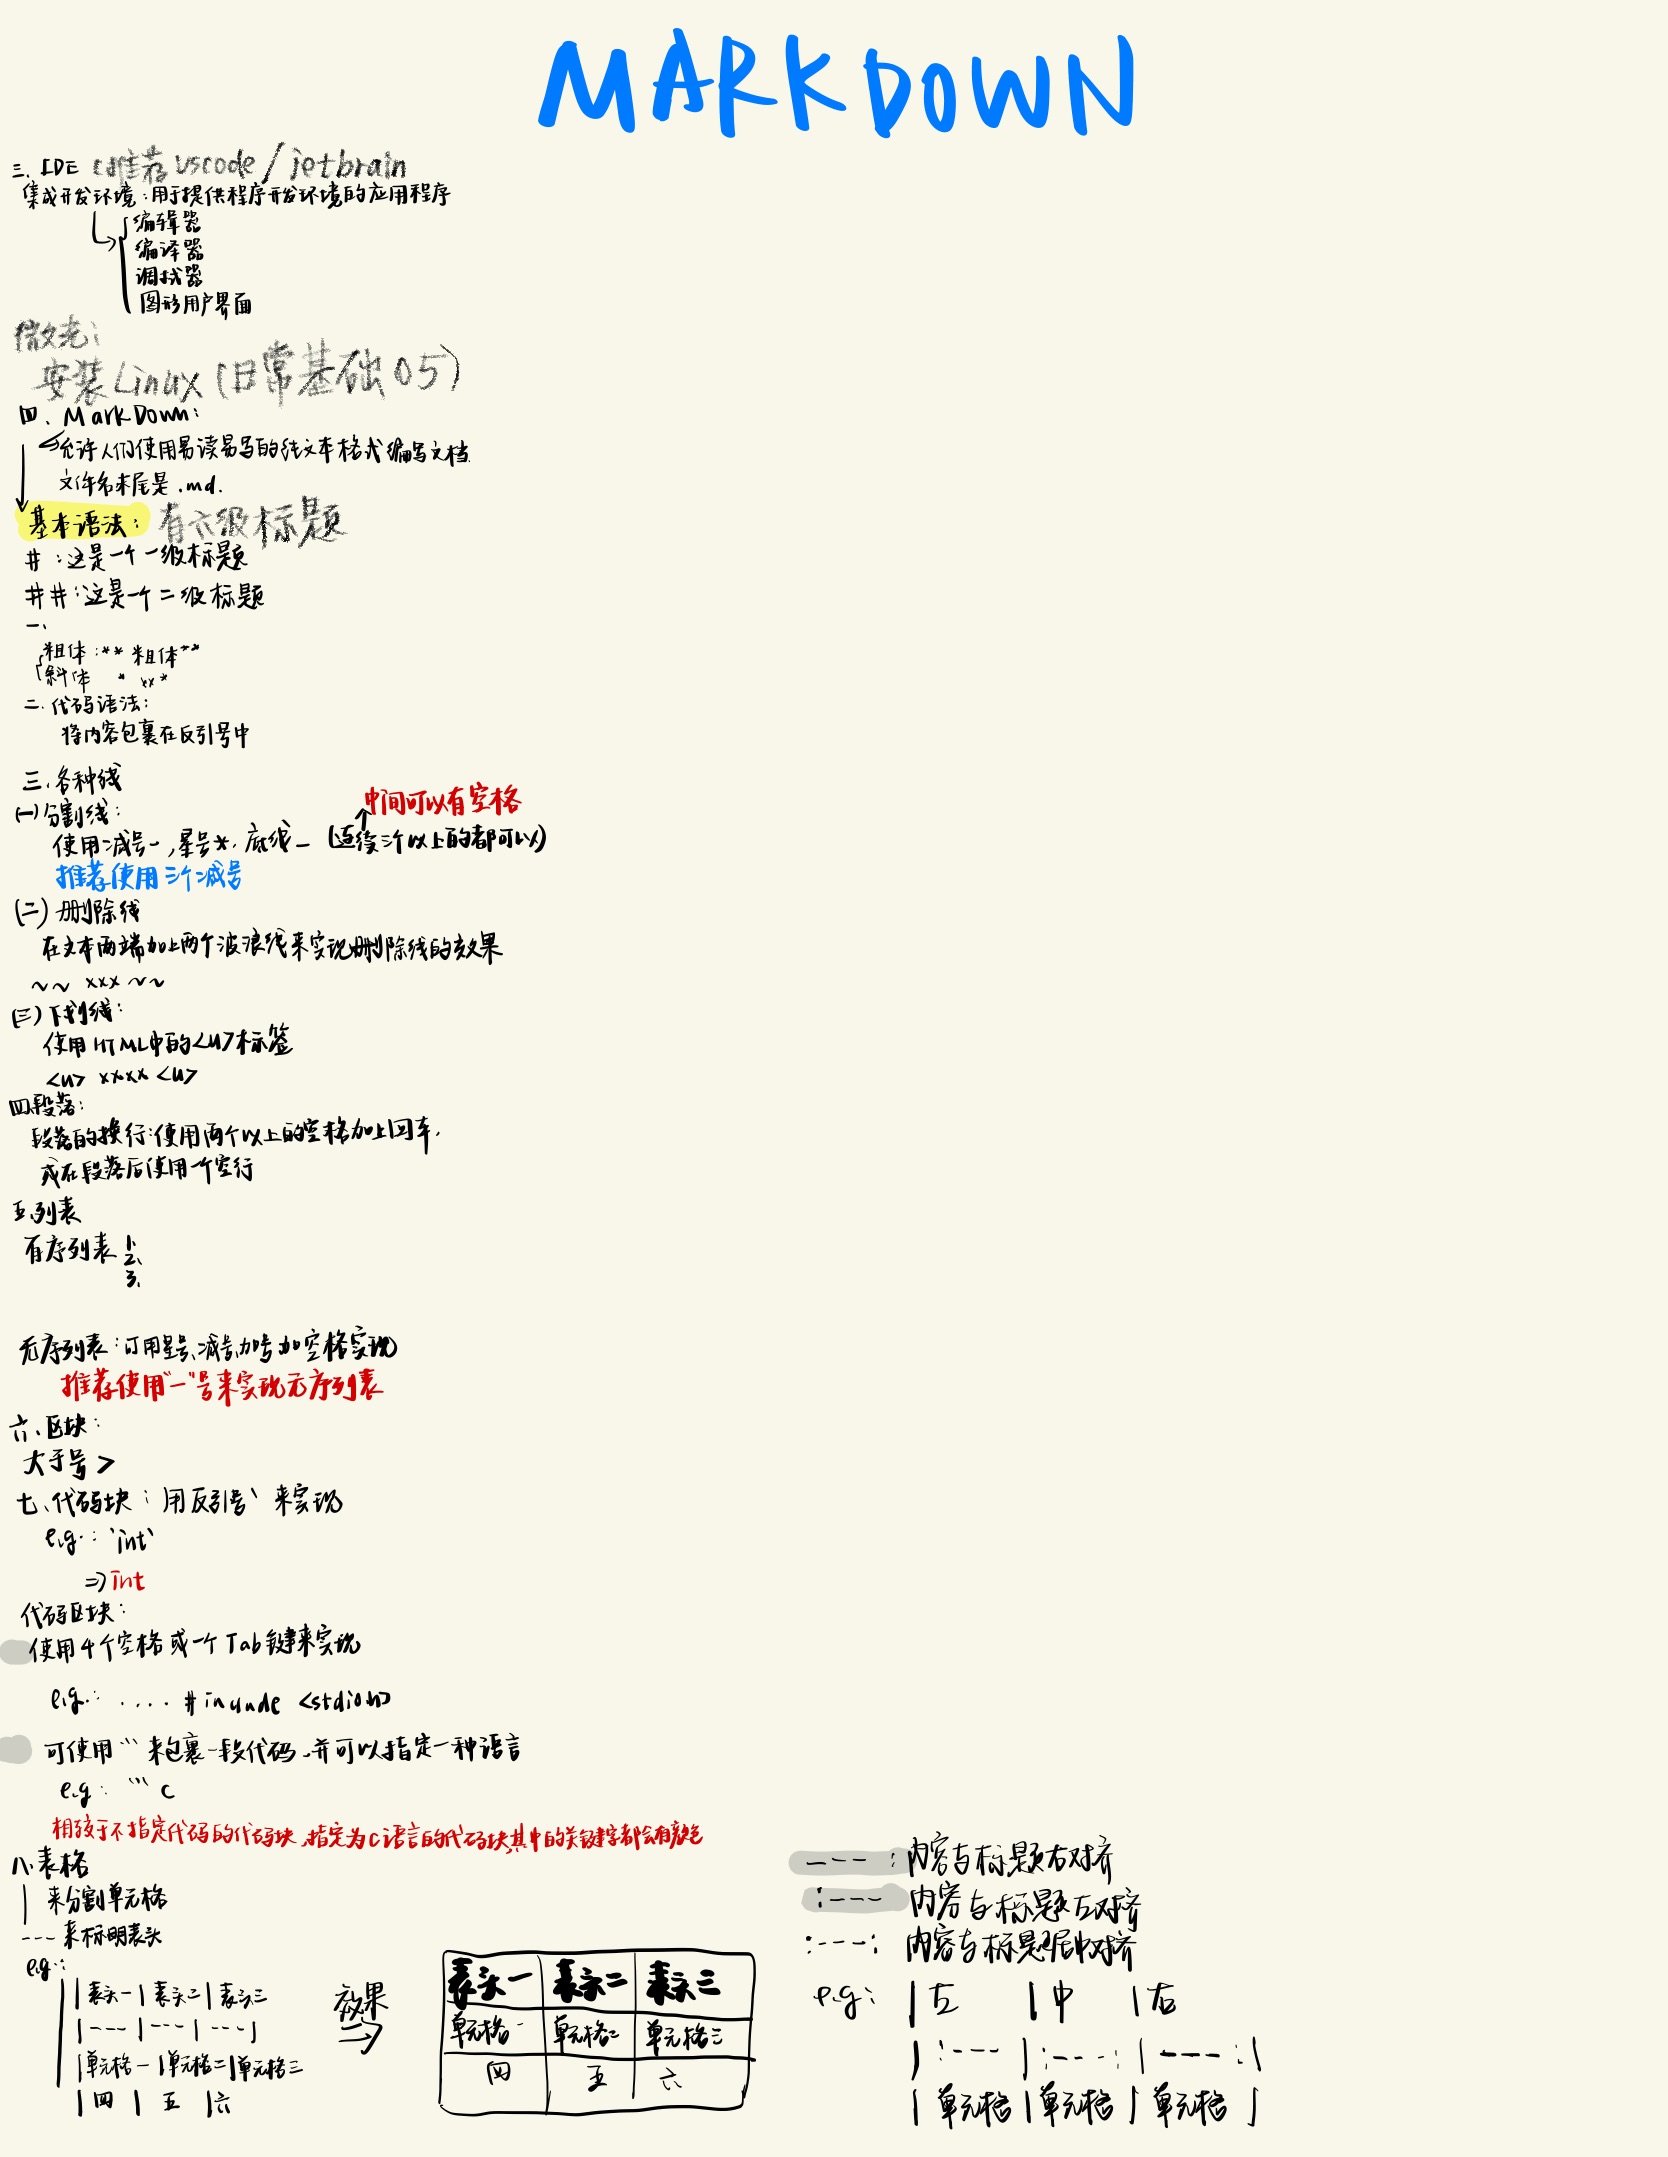 MARKDOWN
三. IDE (推荐 vscode / jetbrain
集成开发环境:用于提供程序开发环境的应用程序
编辑器
编译器
调试器
图形用户界面
微光:
安装Linux(日常基础05)
四. MarkDown:
允许人们使用易读易写的纯文本格式编写文档
文件名末尾是 .md.
基本语法: 有六级标题
# :这是一个一级标题
##:这是一个二级标题
一.
粗体:** 粗体**
斜体 * xx*
二.代码语法:
将内容包裹在反引号中
三.各种线
中间可以有空格
(一)分割线:
使用减号-,星号*.底线_ (连续三个以上的都可以)
推荐使用三个减号
(二)删除线
在文本两端加上两个波浪线来实现删除线的效果
~~ xxx ~~
(三)下划线:
使用HTML中的<u>标签
<u> xxxx <u>
四.段落:
段落的换行:使用两个以上的空格加上回车.
或在段落后使用一个空行
五.列表
有序列表 1.
2.
3.
无序列表:可用星号、减号、加号加空格实现
推荐使用"-"号来实现无序列表
六.区块:
大于号 >
七、代码块:用反引号` 来实现
e.g.: `int`
=> int
代码区块:
使用4个空格或一个Tab键来实现
e.g.: .... #include <stdio.h>
可使用 ``` 来包裹一段代码,并可以指定一种语言
e.g: ``` C
相较于不指定代码的代码块,指定为C语言的代码块,其中的关键字都会有颜色
八.表格
| 来分割单元格
--- 来标明表头
e.g.:
| 表头一 | 表头二 | 表头三
| --- | --- | --- |
|单元格一 |单元格二 |单元格三
| 四 | 五 |六
效果
=>
表头一 表头二 表头三
单元格一 单元格二 单元格三
四 五 六
---- : 内容与标题右对齐
:--- 内容与标题左对齐
:---: 内容与标题居中对齐
e.g: |左 |中 |右
| :--- | :---: | ---: |
| 单元格 | 单元格 | 单元格 |